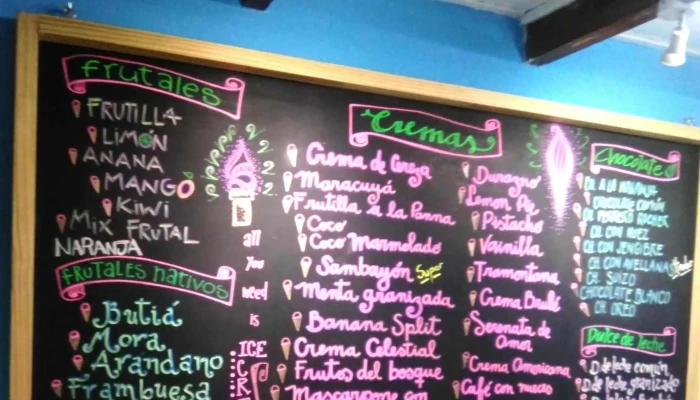 Frutales
FRUTILLA
LIMÓN
ANANA
MANGO
KIWI
MIX FRUTAL
NARANJA
FRUTALES NATIVOS
Butiá
Mora
Arandano
Frambuesa
all
You
need
is
ICE
C
R
Cremas
Crema de Cereza
Maracuyá
Frutilla a la Panna
Coco
Coco Marmolado
Sambayón Super
Menta granizada
Banana Split
Crema Celestial
Frutos del bosque
Mascarpone con
Durazno
Lemon Pie
Pistacho
Vainilla
Tramontana
Crema Brulé
Serenata de
Amor
Crema Americana
Café con nueces
Chocolate
CH. A LA NARANJA
CHOCOLATE COMÚN
CH. FERRERO ROCHER
CH. CON NUEZ
CH. CON JENGIBRE
CH. CON AVELLANA
CH. SUIZO
CHOCOLATE BLANCO
CH. OREO
Dulce de leche
D. de leche común
D. de leche granizado